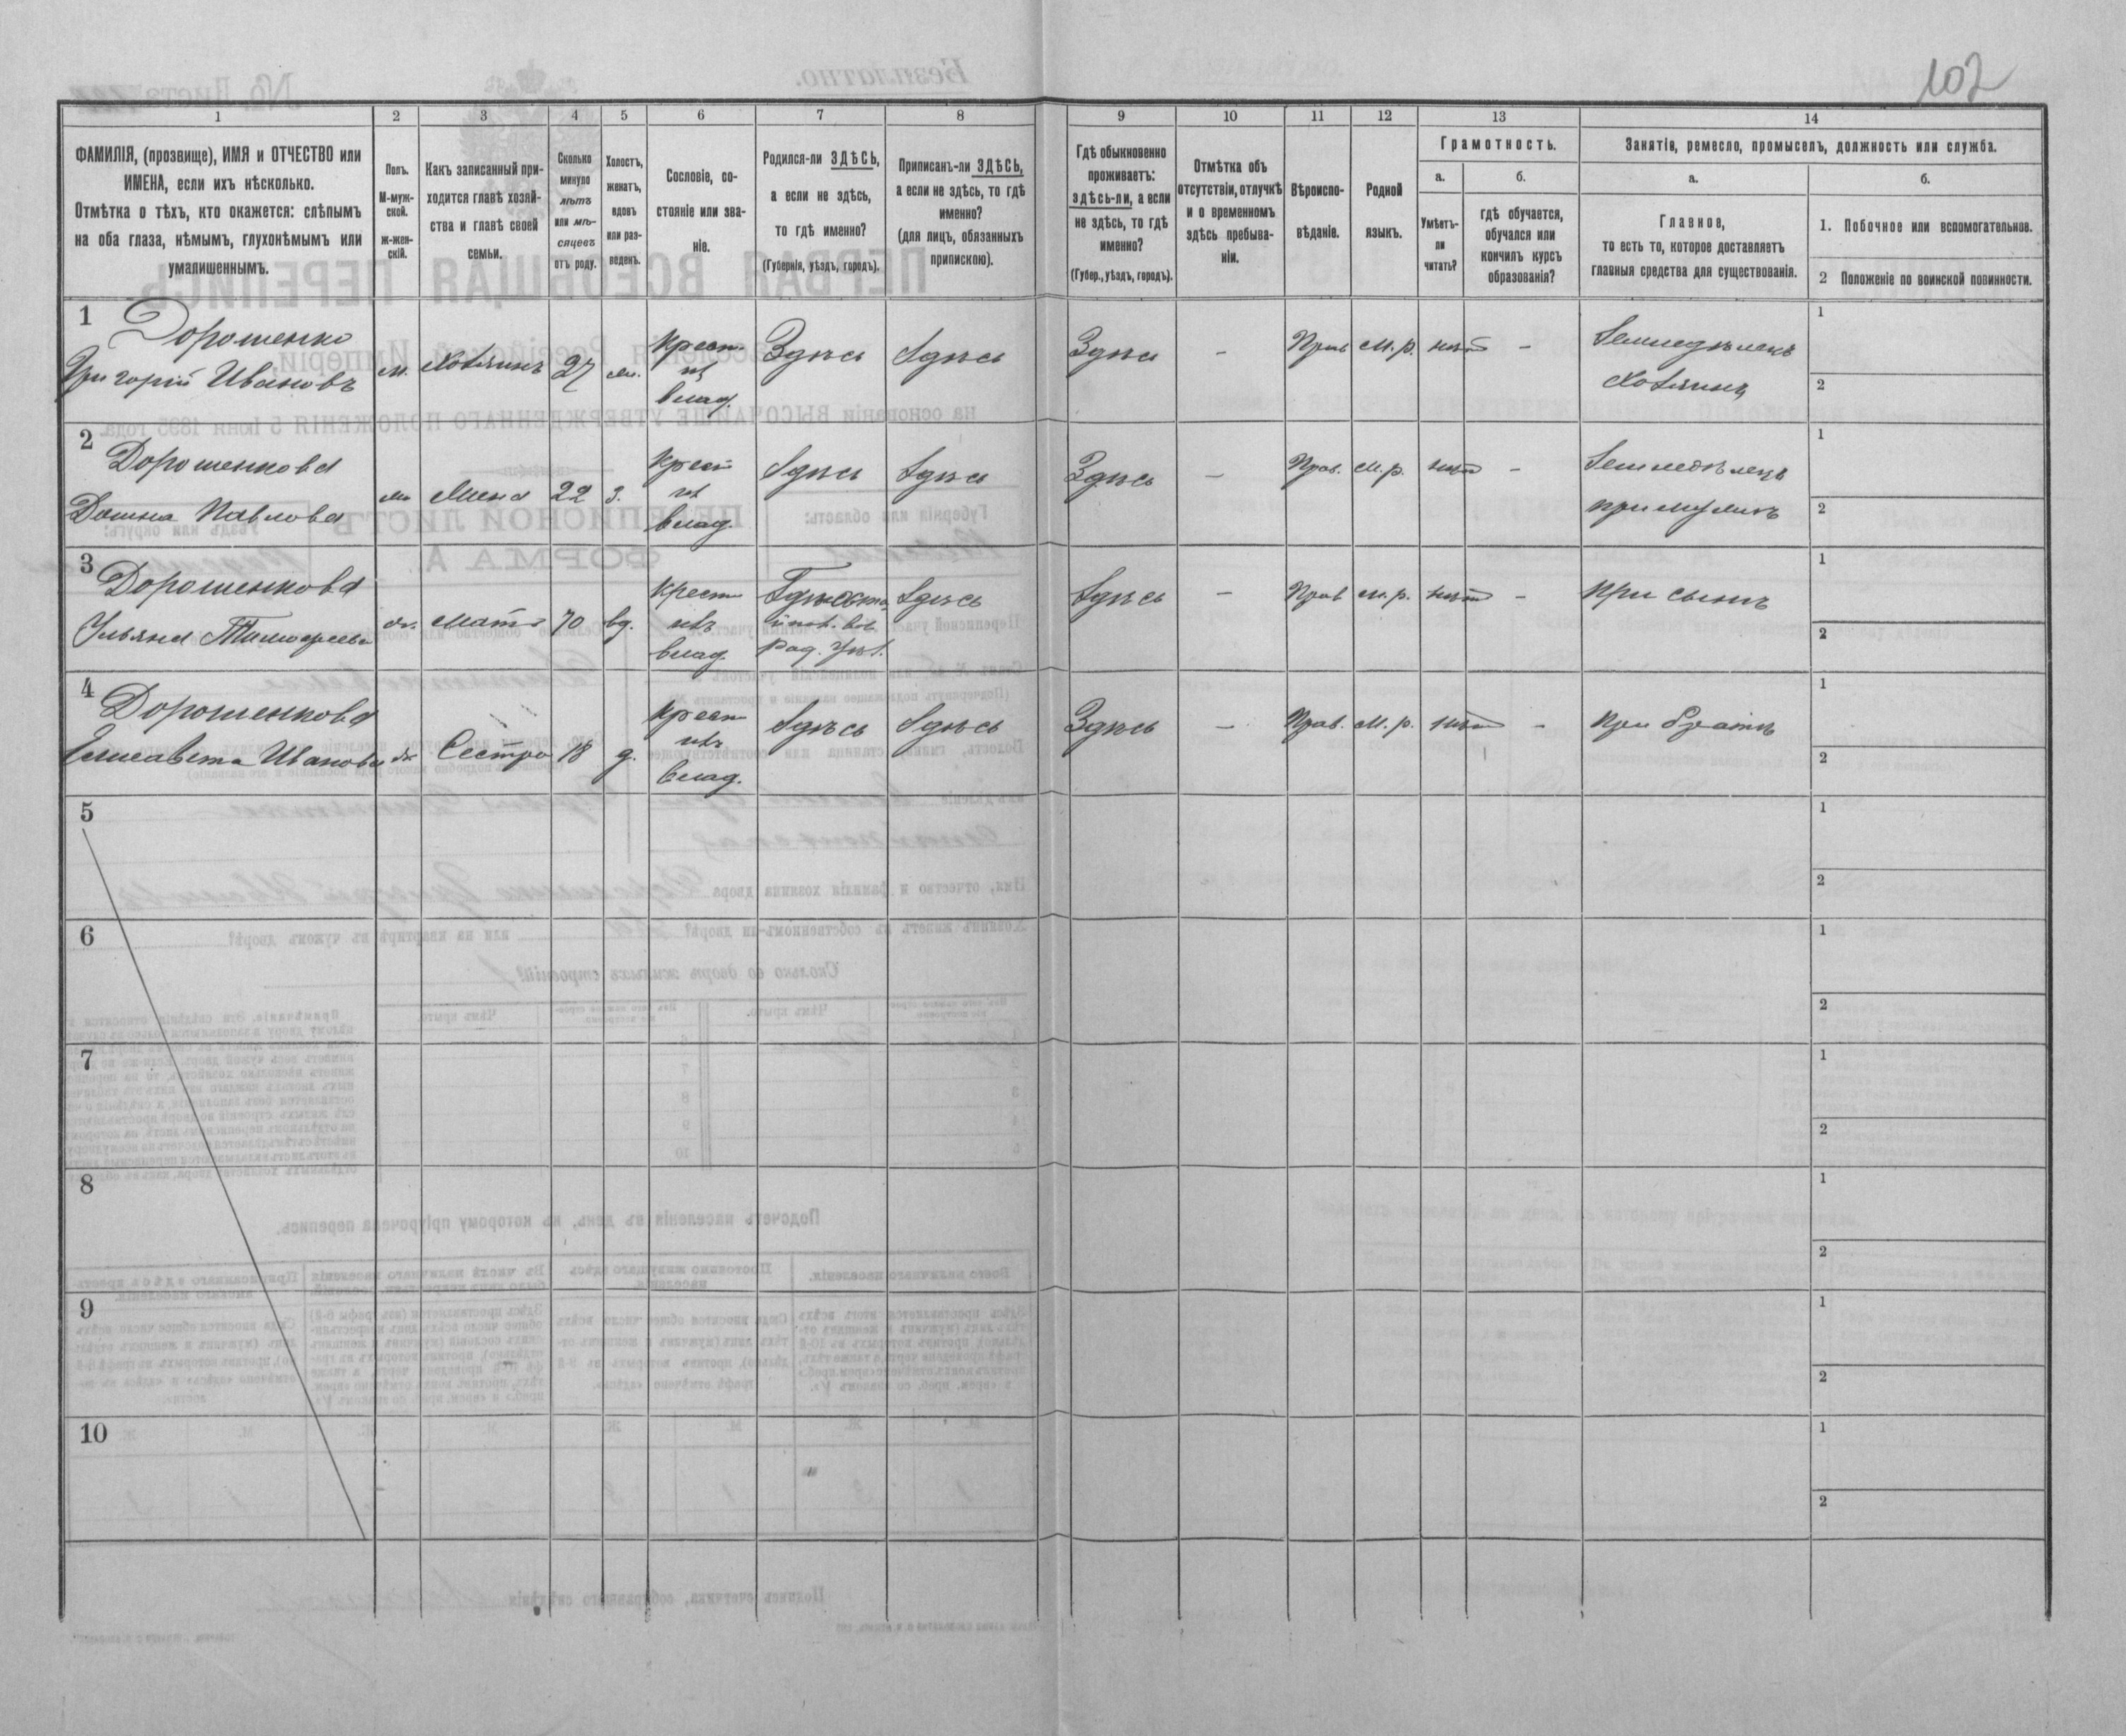 102
1
2
3
4
5
6
7
8
9
10
11
12
13
14
ФАМИЛІЯ, (прозвище), ИМЯ и ОТЧЕСТВО или
ИМЕНА, если ихъ нѣсколько.
Отмѣтка о тѣхъ, кто окажется: слѣпымъ
на оба глаза, нѣмымъ, глухонѣмымъ или
умалишеннымъ.
Полъ.
М-муж-
ской.
ж-жен-
скій.
Какъ записанный при-
ходится главѣ хозяй-
ства и главѣ своей
семьи.
Сколько
минуло
лѣтъ
или мѣ-
сяцевъ
отъ роду.
Холостъ,
женатъ,
вдовъ
или раз-
веденъ.
Сословіе, со-
стояніе или зва-
ніе.
Родился-ли ЗДѢСЬ,
а если не здѣсь,
то гдѣ именно?
(Губернія, уѣздъ, городъ).
Приписанъ-ли ЗДѢСЬ,
а если не здѣсь, то гдѣ
именно?
(для лицъ, обязанныхъ
припискою).
Гдѣ обыкновенно
проживаетъ:
здѣсь-ли, а если
не здѣсь, то гдѣ
именно?
(Губер., уѣздъ, городъ).
Отмѣтка объ
отсутствіи, отлучкѣ
и о временномъ
здѣсь пребыва-
ніи.
Вѣроиспо-
вѣданіе.
Родной
языкъ.
Грамотность.
а.
Умѣетъ-
ли
читать?
б.
гдѣ обучается,
обучался или
кончилъ курсъ
образованія?
Занятія, ремесло, промыселъ, должность или служба.
а.
Главное,
то есть то, которое доставляетъ
главныя средства для существованія.
б.
1. Побочное или вспомогательное.
2 Положеніе по воинской повинности.
1 Дорошенко
Григорій Ивановъ
м. Хозяинъ 27 Крест. Здѣсь Здѣсь Здѣсь - Прав М.р. нѣт - Земледѣлецъ
влад. Хозяинъ
1
2
2 Дорошенкова
Павлова
Жена 22 з. Крест Здѣсь Здѣсь Здѣсь - Прав. М.р. нѣт - Земледѣлецъ
влад. при мужѣ
1
2
3 Дорошенкова
Ульяна Тимофеева
Мать 70 вд. Крест Здѣсь Здѣсь - Прав М.р. нѣт - При сынѣ
изъ
влад. Рад. уѣз.
1
2
4 Дорошенкова
Елисавета Иванова
Сестра 18 д. Крест Здѣсь Здѣсь Здѣсь - Прав. М.р. нѣт - При братѣ
изъ
влад.
1
2
5
1
2
6
1
2
7
1
2
8
1
2
9
1
2
10
1
2